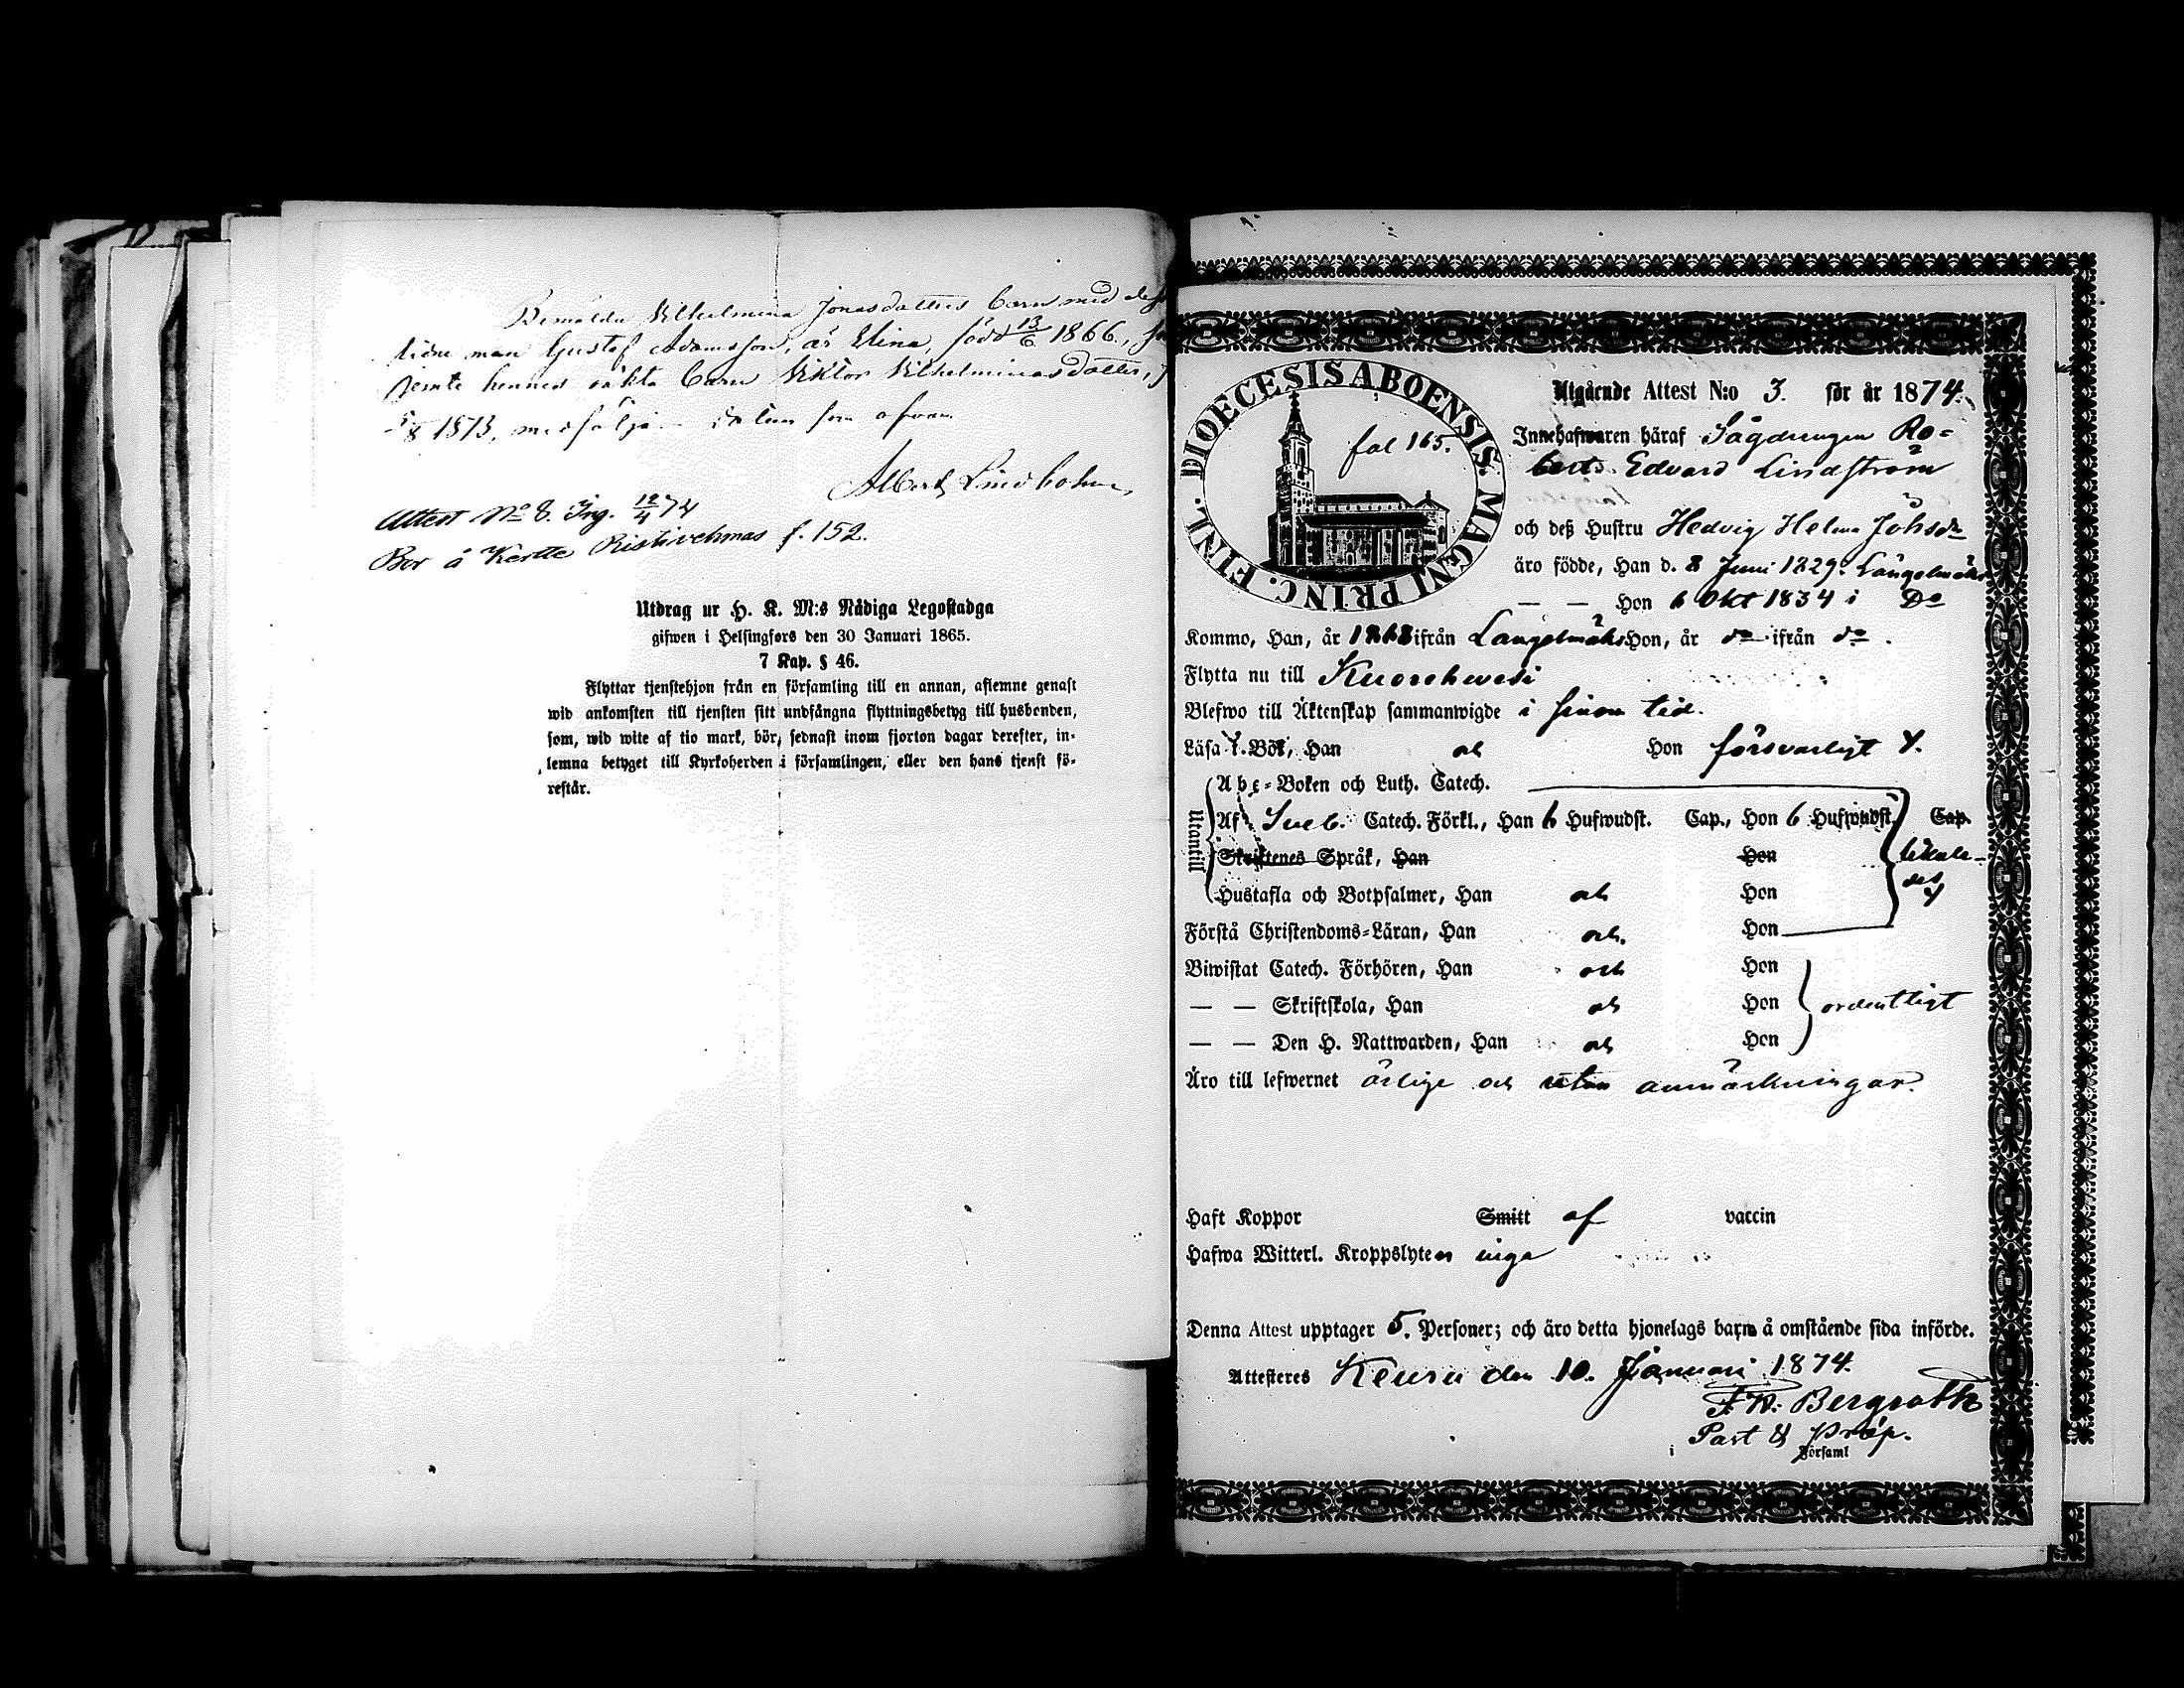 Bemälda Vilhelmina Jonasdotters barn med dess
lidne man Gustaf Adamsson, är Elina, född 13/6 1866,
jemte hennes oäkta barn Viktor Vilhelminasdotter,
5/8 1873, medfölja. Datum som ofvan
Albert Lindholm
Attest No 8. Ing. 12/4 74
Bor å Kertte Ristivehmas f. 152.
Utdrag ur H. K. M:s Nådiga Legostadga
gifwen i Helsingfors den 30 Januari 1865.
7 Kap. § 46.
Flyttar tjenstehjon från en församling till en annan, aflemne genast
wid ankomsten till tjensten sitt undfångna flyttningsbetyg till husbonden,
som, wid wite af tio mark, bör, sednast inom fjorton dagar derefter, in-
lemna betyget till Kyrkoherden i församlingen, eller den hans tjenst fö-
restår.
DIOECESIS ABOENSIS. MAGNI PRINC. FINL.
fol 165.
Utgående Attest N:o 3. för år 1874.
Innehafwaren häraf Sågdrengen Ro-
bert Edvard Lindström
och deß Hustru Hedvig Helena Johsdr
äro födde, Han d. 8 Juni 1829. Längelmäki
— — Hon 6 Okt 1834 i Do
Kommo, Han, år 1868 ifrån Längelmäki Hon, år do ifrån do.
Flytta nu till Kuorehvesi
Blefwo till Äktenskap sammanwigde i sinom tid.
Läsa i Bok, Han och Hon försvarligt
Abc-Boken och Luth. Catech.
Utantill
Af Sveb. Catech. Förkl., Han 6 Hufwudst. Cap., Hon 6 Hufwudst. Cap.
Skriftenes Språk, Han Hon likale-
des
Hustafla och Botpsalmer, Han och Hon
Förstå Christendoms-Läran, Han och Hon
Biwistat Catech. Förhören, Han och Hon
— — Skriftskola, Han och Hon ordentligt
— — Den H. Nattwarden, Han och Hon
Äro till lefwernet ärlige och utan anmärkningar.
Haft Koppor Smitt af vaccin
Hafwa Witterl. Kroppslyten inga
Denna Attest upptager 5. Personer; och äro detta hjonelags barn å omstående sida införde.
Attesteres Keuru den 10. Januari 1874.
F. W. Bergroth
Past & Prep.
i Församl